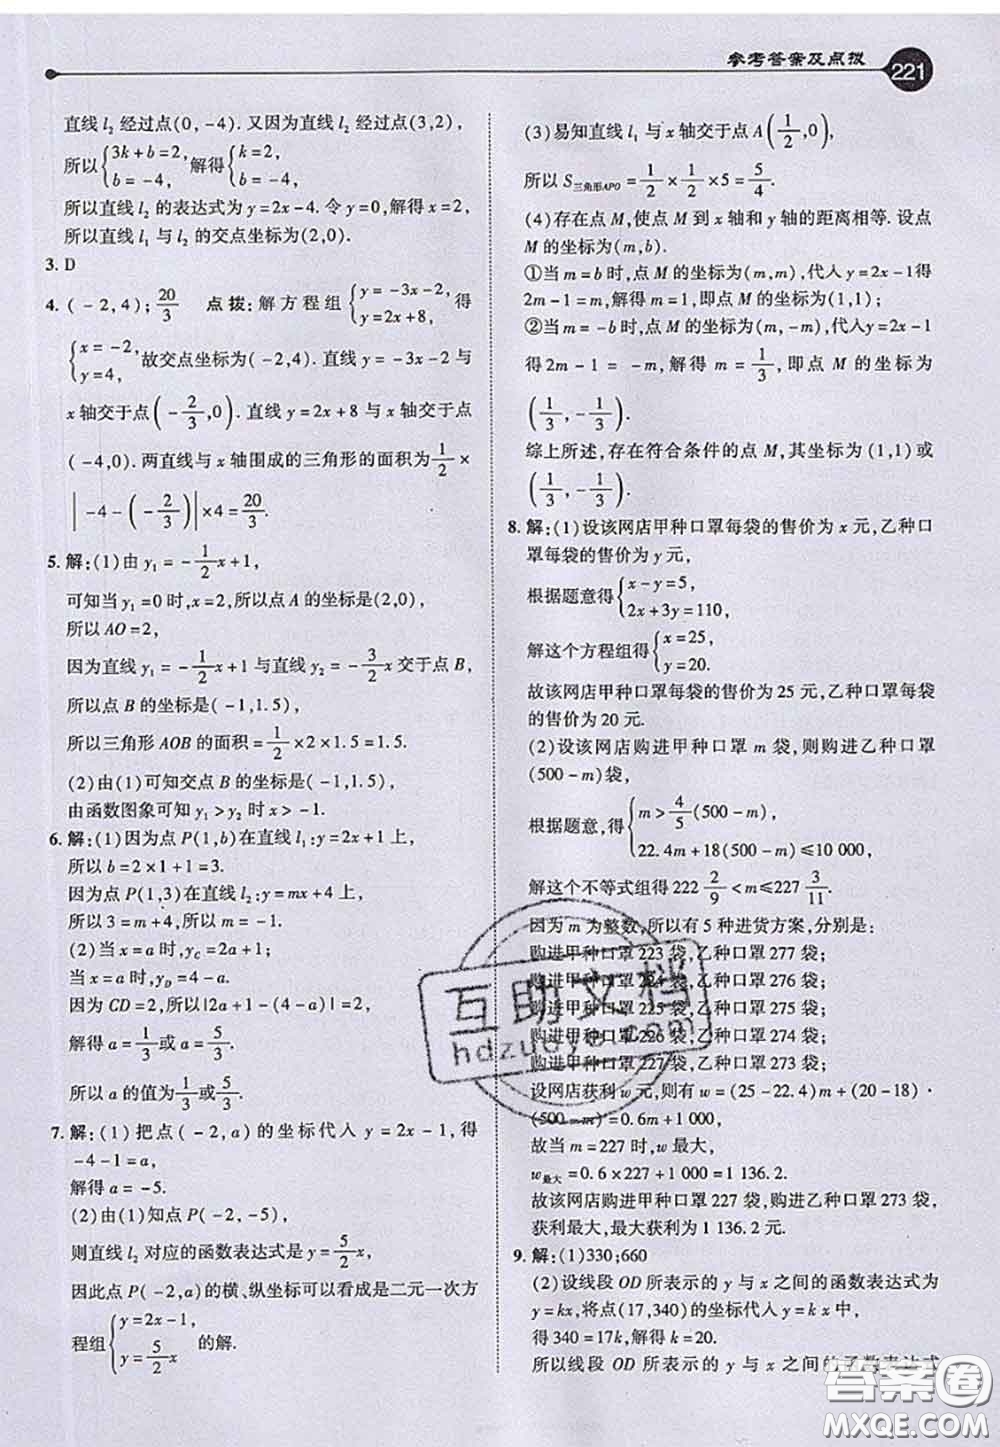 参考答案及点拨
221
直线 l₂ 经过点(0,-4). 又因为直线 l₂ 经过点(3,2),
所以{3k+b=2, b=-4, 解得{k=2, b=-4,
所以直线 l₂ 的表达式为 y=2x-4. 令 y=0,解得 x=2,
所以直线 l₁ 与 l₂ 的交点坐标为(2,0).
3. D
4. (-2,4); 20/3 点拨:解方程组{y=-3x-2, y=2x+8, 得
{x=-2, y=4, 故交点坐标为(-2,4). 直线 y=-3x-2 与
x 轴交于点(-2/3,0). 直线 y=2x+8 与 x 轴交于点
(-4,0). 两直线与 x 轴围成的三角形的面积为1/2×
|-4-(-2/3)|×4=20/3.
5. 解:(1)由 y₁=-1/2x+1,
可知当 y₁=0 时,x=2,所以点 A 的坐标是(2,0),
所以 AO=2,
因为直线 y₁=-1/2x+1 与直线 y₂=-3/2x 交于点 B,
所以点 B 的坐标是(-1,1.5),
所以三角形 AOB 的面积=1/2×2×1.5=1.5.
(2)由(1)可知交点 B 的坐标是(-1,1.5),
由函数图象可知 y₁>y₂ 时 x>-1.
6. 解:(1)因为点 P(1,b)在直线 l₁:y=2x+1 上,
所以 b=2×1+1=3.
因为点 P(1,3)在直线 l₂:y=mx+4 上,
所以 3=m+4,所以 m=-1.
(2)当 x=a 时,y_C=2a+1;
当 x=a 时,y_D=4-a.
因为 CD=2,所以|2a+1-(4-a)|=2,
解得 a=1/3或 a=5/3.
所以 a 的值为1/3或5/3.
7. 解:(1)把点(-2,a)的坐标代入 y=2x-1,得
-4-1=a,
解得 a=-5.
(2)由(1)知点 P(-2,-5),
则直线 l₂ 对应的函数表达式是 y=5/2x,
因此点 P(-2,a)的横、纵坐标可以看成是二元一次方
程组{y=2x-1, y=5/2x 的解.
(3)易知直线 l₁ 与 x 轴交于点 A(1/2,0),
所以 S三角形APO=1/2×1/2×5=5/4.
(4)存在点 M,使点 M 到 x 轴和 y 轴的距离相等. 设点
M 的坐标为(m,b).
①当 m=b 时,点 M 的坐标为(m,m),代入 y=2x-1得
2m-1=m,解得 m=1,即点 M 的坐标为(1,1);
②当 m=-b 时,点 M 的坐标为(m,-m),代入y=2x-1
得 2m-1=-m,解得 m=1/3,即点 M 的坐标为
(1/3,-1/3).
综上所述,存在符合条件的点 M,其坐标为(1,1)或
(1/3,-1/3).
8. 解:(1)设该网店甲种口罩每袋的售价为 x 元,乙种口
罩每袋的售价为 y 元,
根据题意得{x-y=5, 2x+3y=110,
解这个方程组得{x=25, y=20.
故该网店甲种口罩每袋的售价为 25 元,乙种口罩每袋
的售价为 20 元.
(2)设该网店购进甲种口罩 m 袋,则购进乙种口罩
(500-m)袋,
根据题意,得{m>4/5(500-m), 22.4m+18(500-m)≤10 000,
解这个不等式组得 222 2/9<m≤227 3/11.
因为 m 为整数,所以有 5 种进货方案,分别是:
购进甲种口罩 223 袋,乙种口罩 277 袋;
购进甲种口罩 224 袋,乙种口罩 276 袋;
购进甲种口罩 225 袋,乙种口罩 275 袋;
购进甲种口罩 226 袋,乙种口罩 274 袋;
购进甲种口罩 227 袋,乙种口罩 273 袋;
设网店获利 w 元,则有 w=(25-22.4)m+(20-18)·
(500-m)=0.6m+1 000,
故当 m=227 时,w 最大,
w最大=0.6×227+1 000=1 136.2.
故该网店购进甲种口罩 227 袋,购进乙种口罩 273 袋,
获利最大,最大获利为 1 136.2 元.
9. 解:(1)330;660
(2)设线段 OD 所表示的 y 与 x 之间的函数表达式为
y=kx,将点(17,340)的坐标代入 y=kx中,
得 340=17k,解得 k=20.
所以线段 OD 所表示的 y 与 x 之间的函数表达式
互助文档
hdzuoye.com
答案圈
MXQE.COM